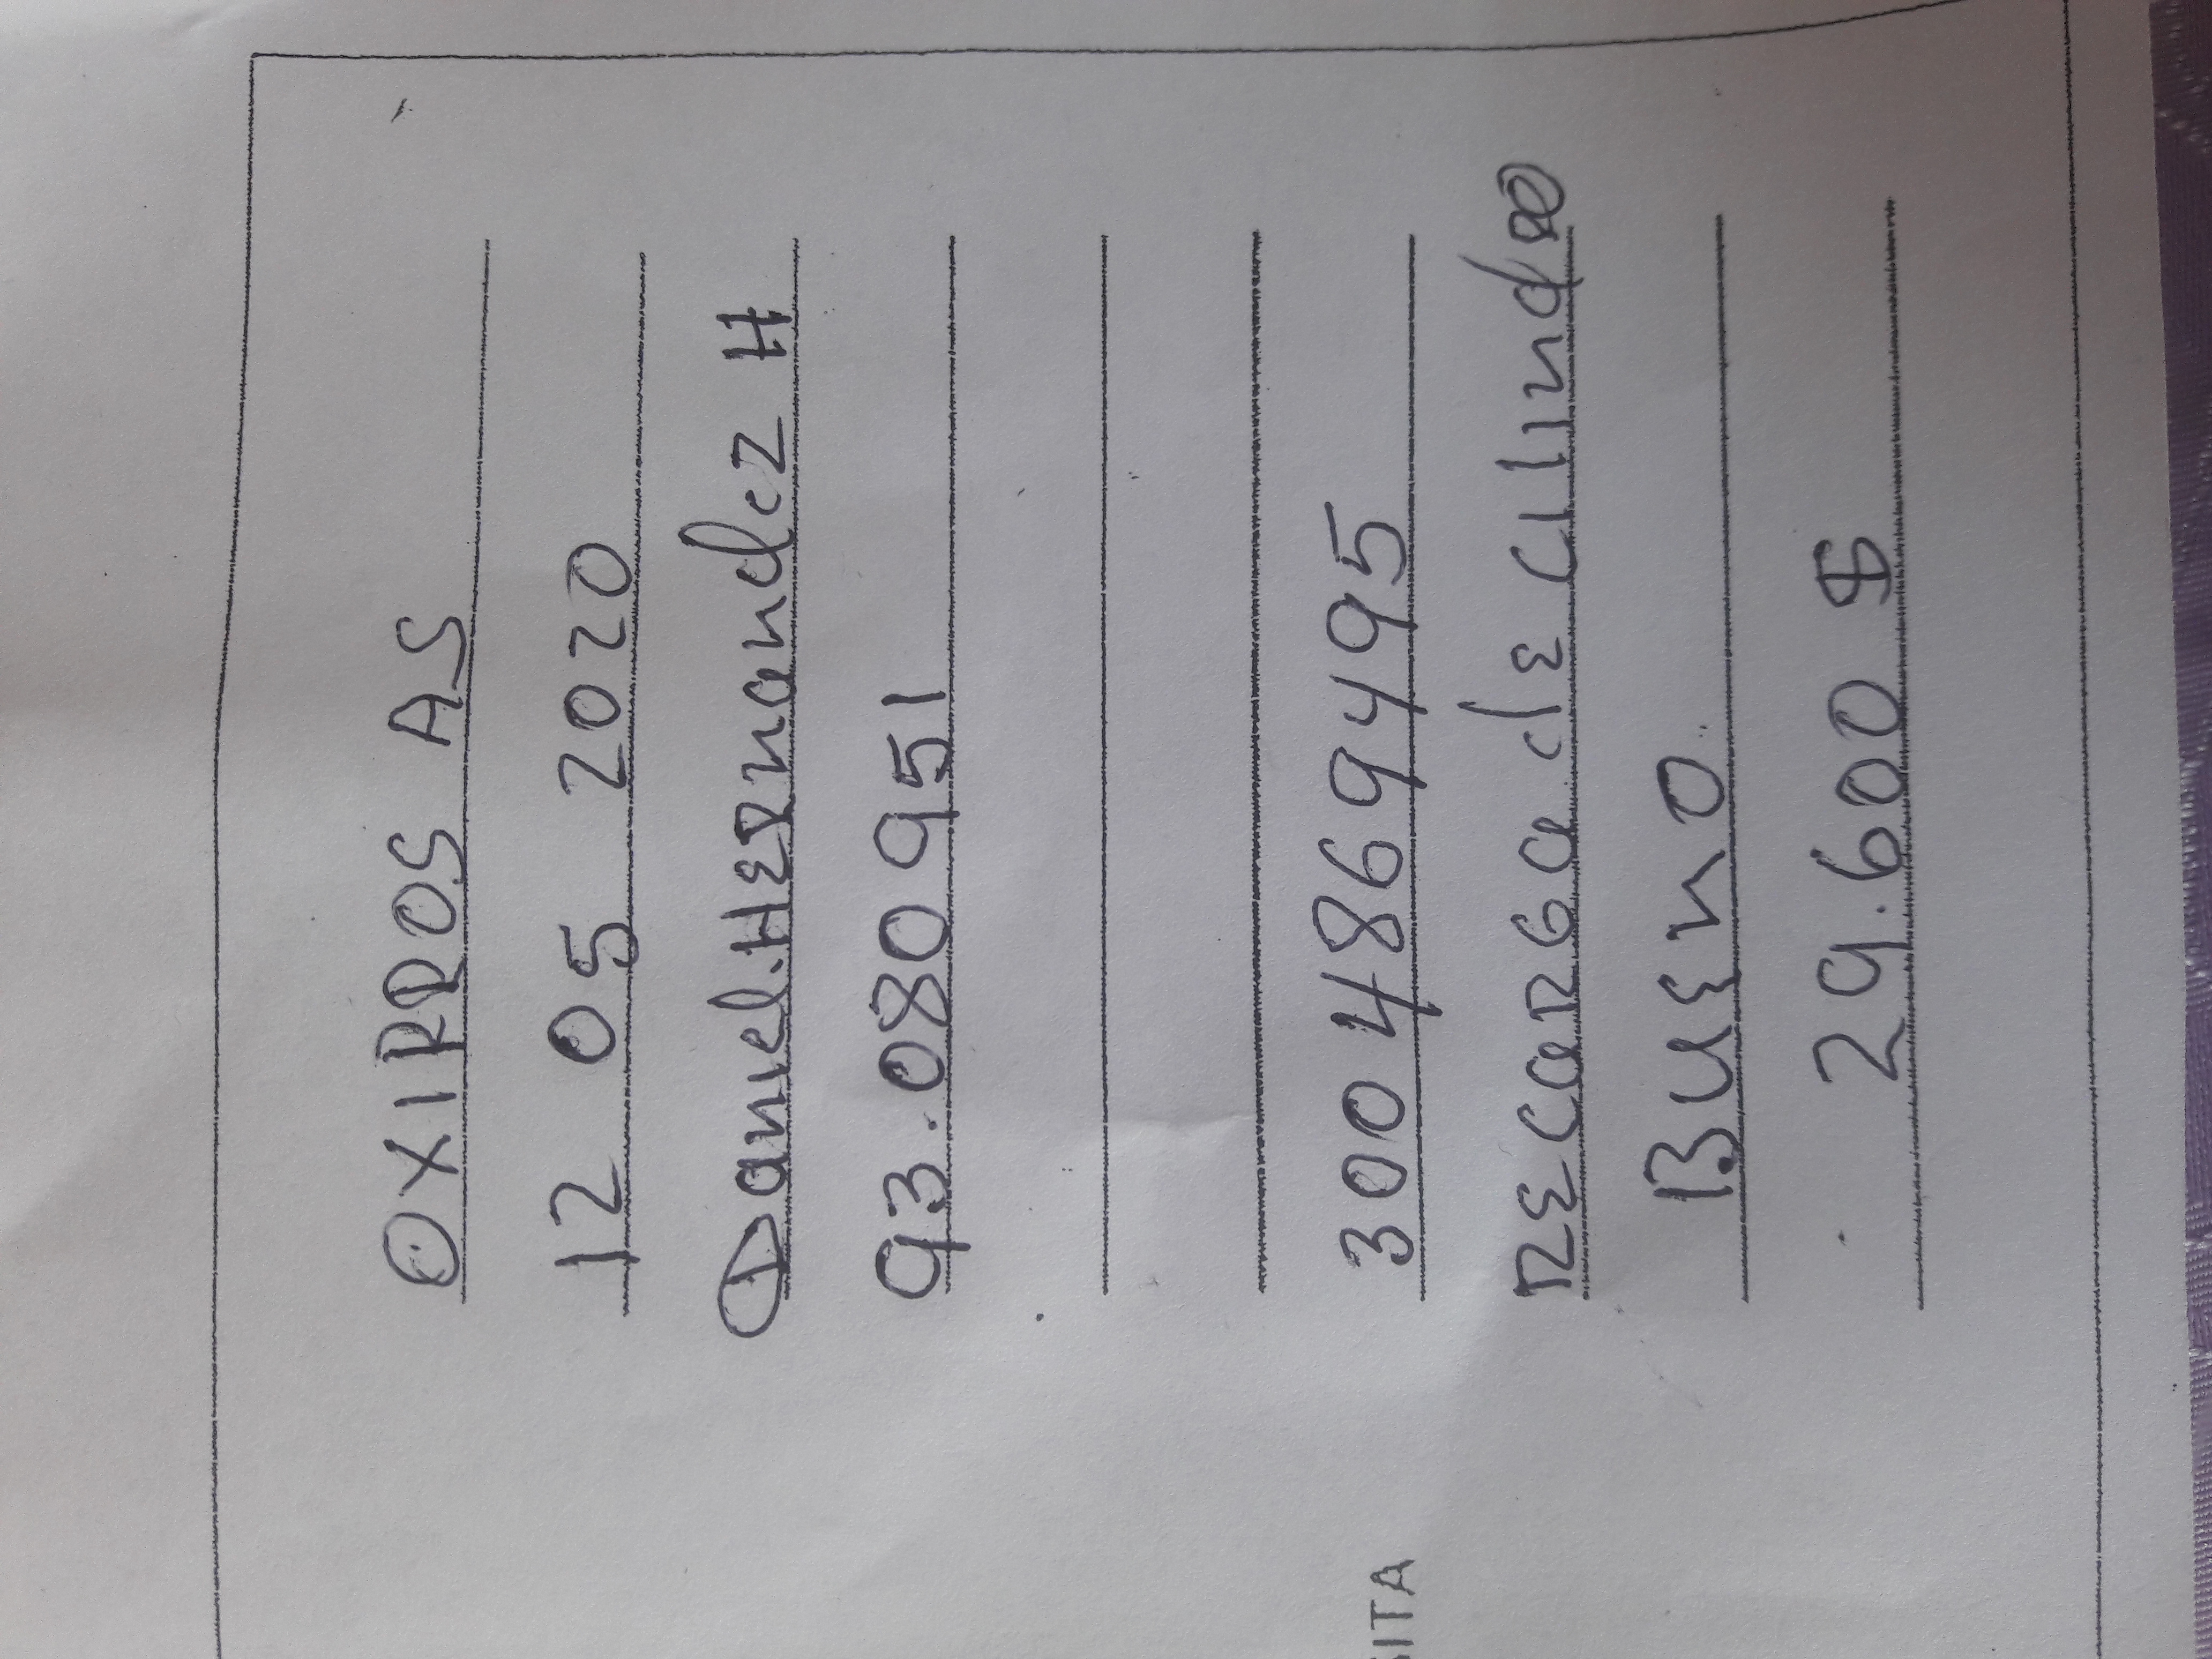 OXIPROS AS
12 05 2020
Daniel.HERnandez H
93.080951
300 4869495
RECaRGa de Cilindro
BuEno
29.600 $
SITA